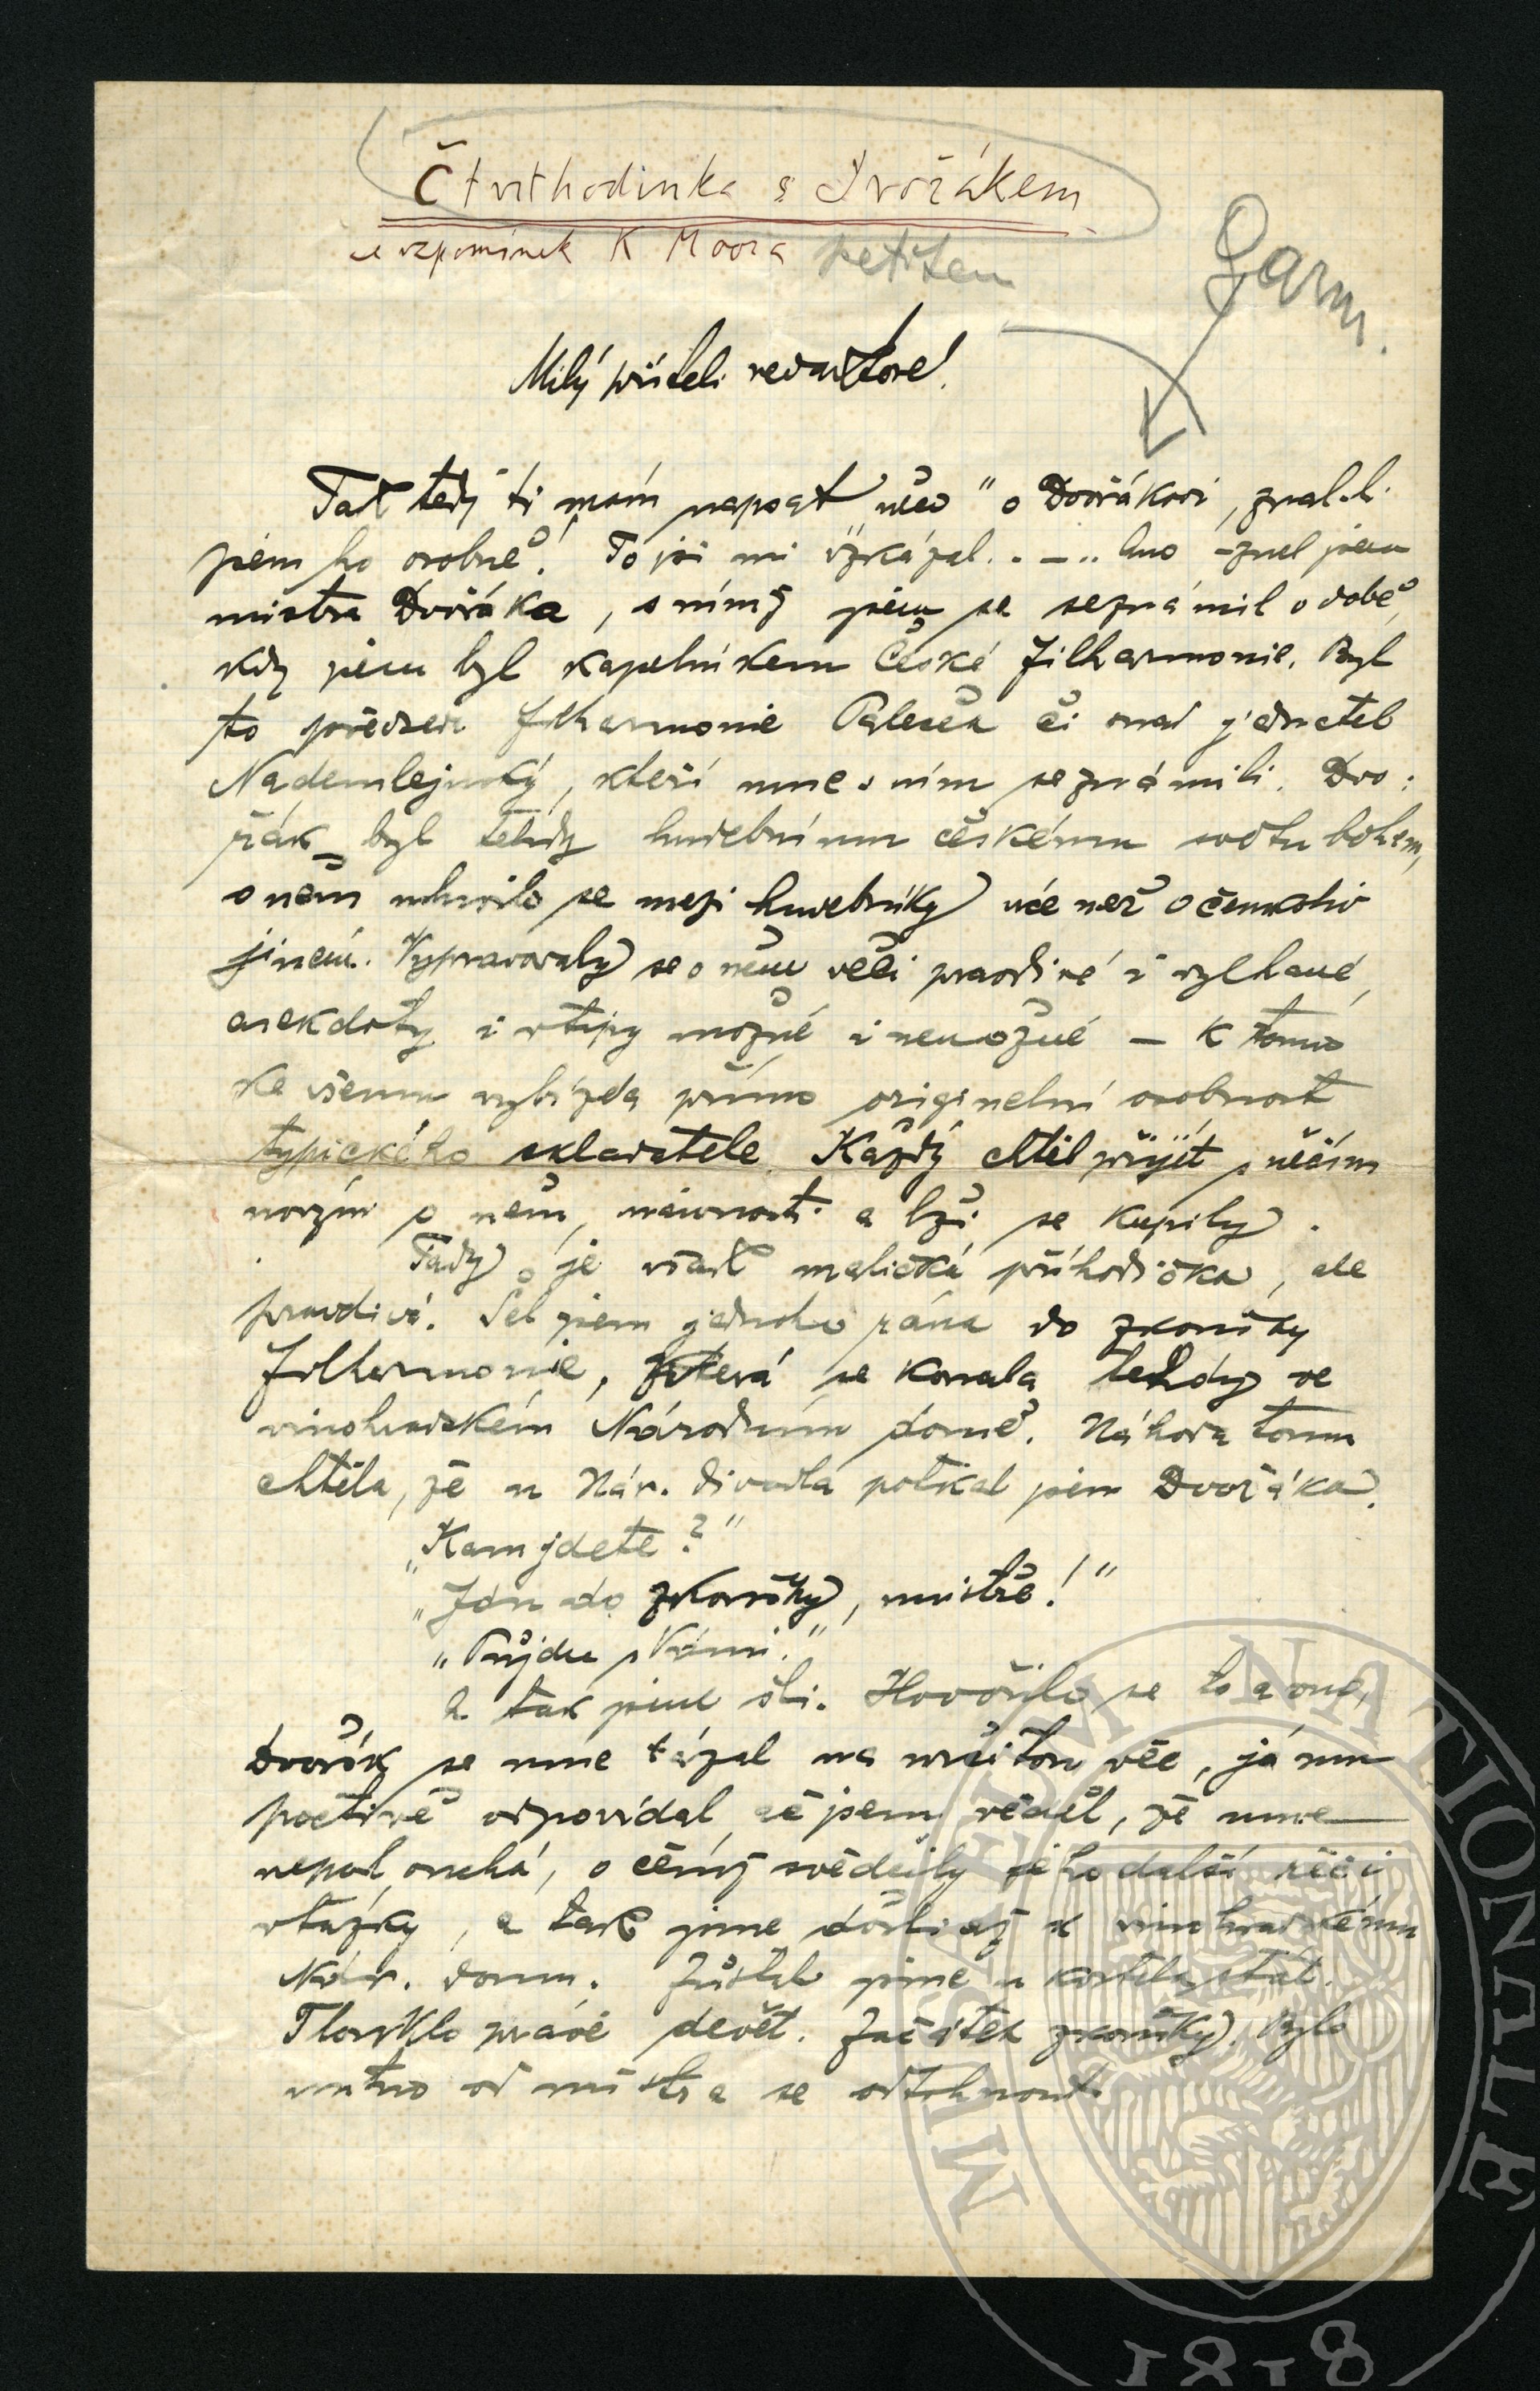 Čtvrthodinka s Dvořákem
ze vzpomínek K Moora petitem
Garm.
Milý příteli redaktore!
Tak tedy ti mám napsat "něco" o Dvořákovi, znal-li
jsem ho osobně! To jsi mi vzkázal..–.. Ano – znal jsem
mistra Dvořáka, s nímž jsem se seznámil v době,
kdy jsem byl kapelníkem České Filharmonie. Byl
to předseda filharmonie Paleček či snad jednatel
Nademlejnský, kteří mne s ním seznámili. Dvo-
řák byl tehdy hudebnímu českému světu bohem,
o něm mluvilo se mezi hudebníky více než o čemkoliv
jiném. Vypravovaly se o něm věci pravdivé i vylhané,
anekdoty i vtipy možné i nemožné – k tomu
ke všemu vybízela přímo originelní osobnost
typického skladatele. Každý chtěl přijít s něčím
novým o něm, naivnosti a lži se kupily.
Tady je však maličká příhodička, ale
pravdivá. Šel jsem jednoho rána do zkoušky
Filharmonie, která se konala tehdy ve
vinohradském Národním domě. Náhoda tomu
chtěla, že u Nár. divadla potkal jsem Dvořáka.
„Kam jdete?"
„Jdu do zkoušky, mistře!"
„Půjdu s Vámi."
A tak jsme šli. Hovořilo se to a ono,
Dvořák se mne tázal na určitou věc, já mu
poctivě odpovídal, ač jsem věděl, že mne
neposlouchá, o čemž svědčily jeho další řeči
otázky, a tak jsme došli až k vinohradskému
Nár. domu. Zůstali jsme u kostela stát.
Tlouklo právě devět. Začátek zkoušky. Bylo
nutno od mistra se odtrhnout.
MUSEUM NATIONALE
1818